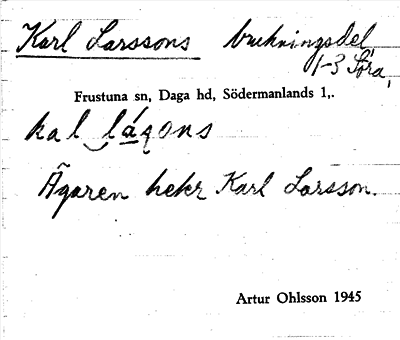 Karl Larssons brukningsdel,
1-3 Söra,
Frustuna sn, Daga hd, Södermanlands l,.
kal lá̱qons
Ägaren heter Karl Larsson.
Artur Ohlsson 1945